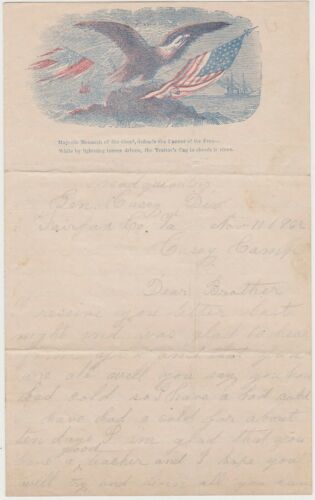 Majestic Monarch of the cloud, Defends the Banner of the Free—
While by lightning terror driven, the Traitor's Cag in shreds is riven.
Headquarters
Gen Casey Div
Fairfax Co Va Nov 11 1862
Casey Camp
Dear Brother
I receive you letter last
night and was glad to hear
from you and that you
are all well you say you have
bad cold so I have a bad cold
I have had a cold for about
ten days I am glad that you
have a good teacher and I hope you
will try and learn all you can